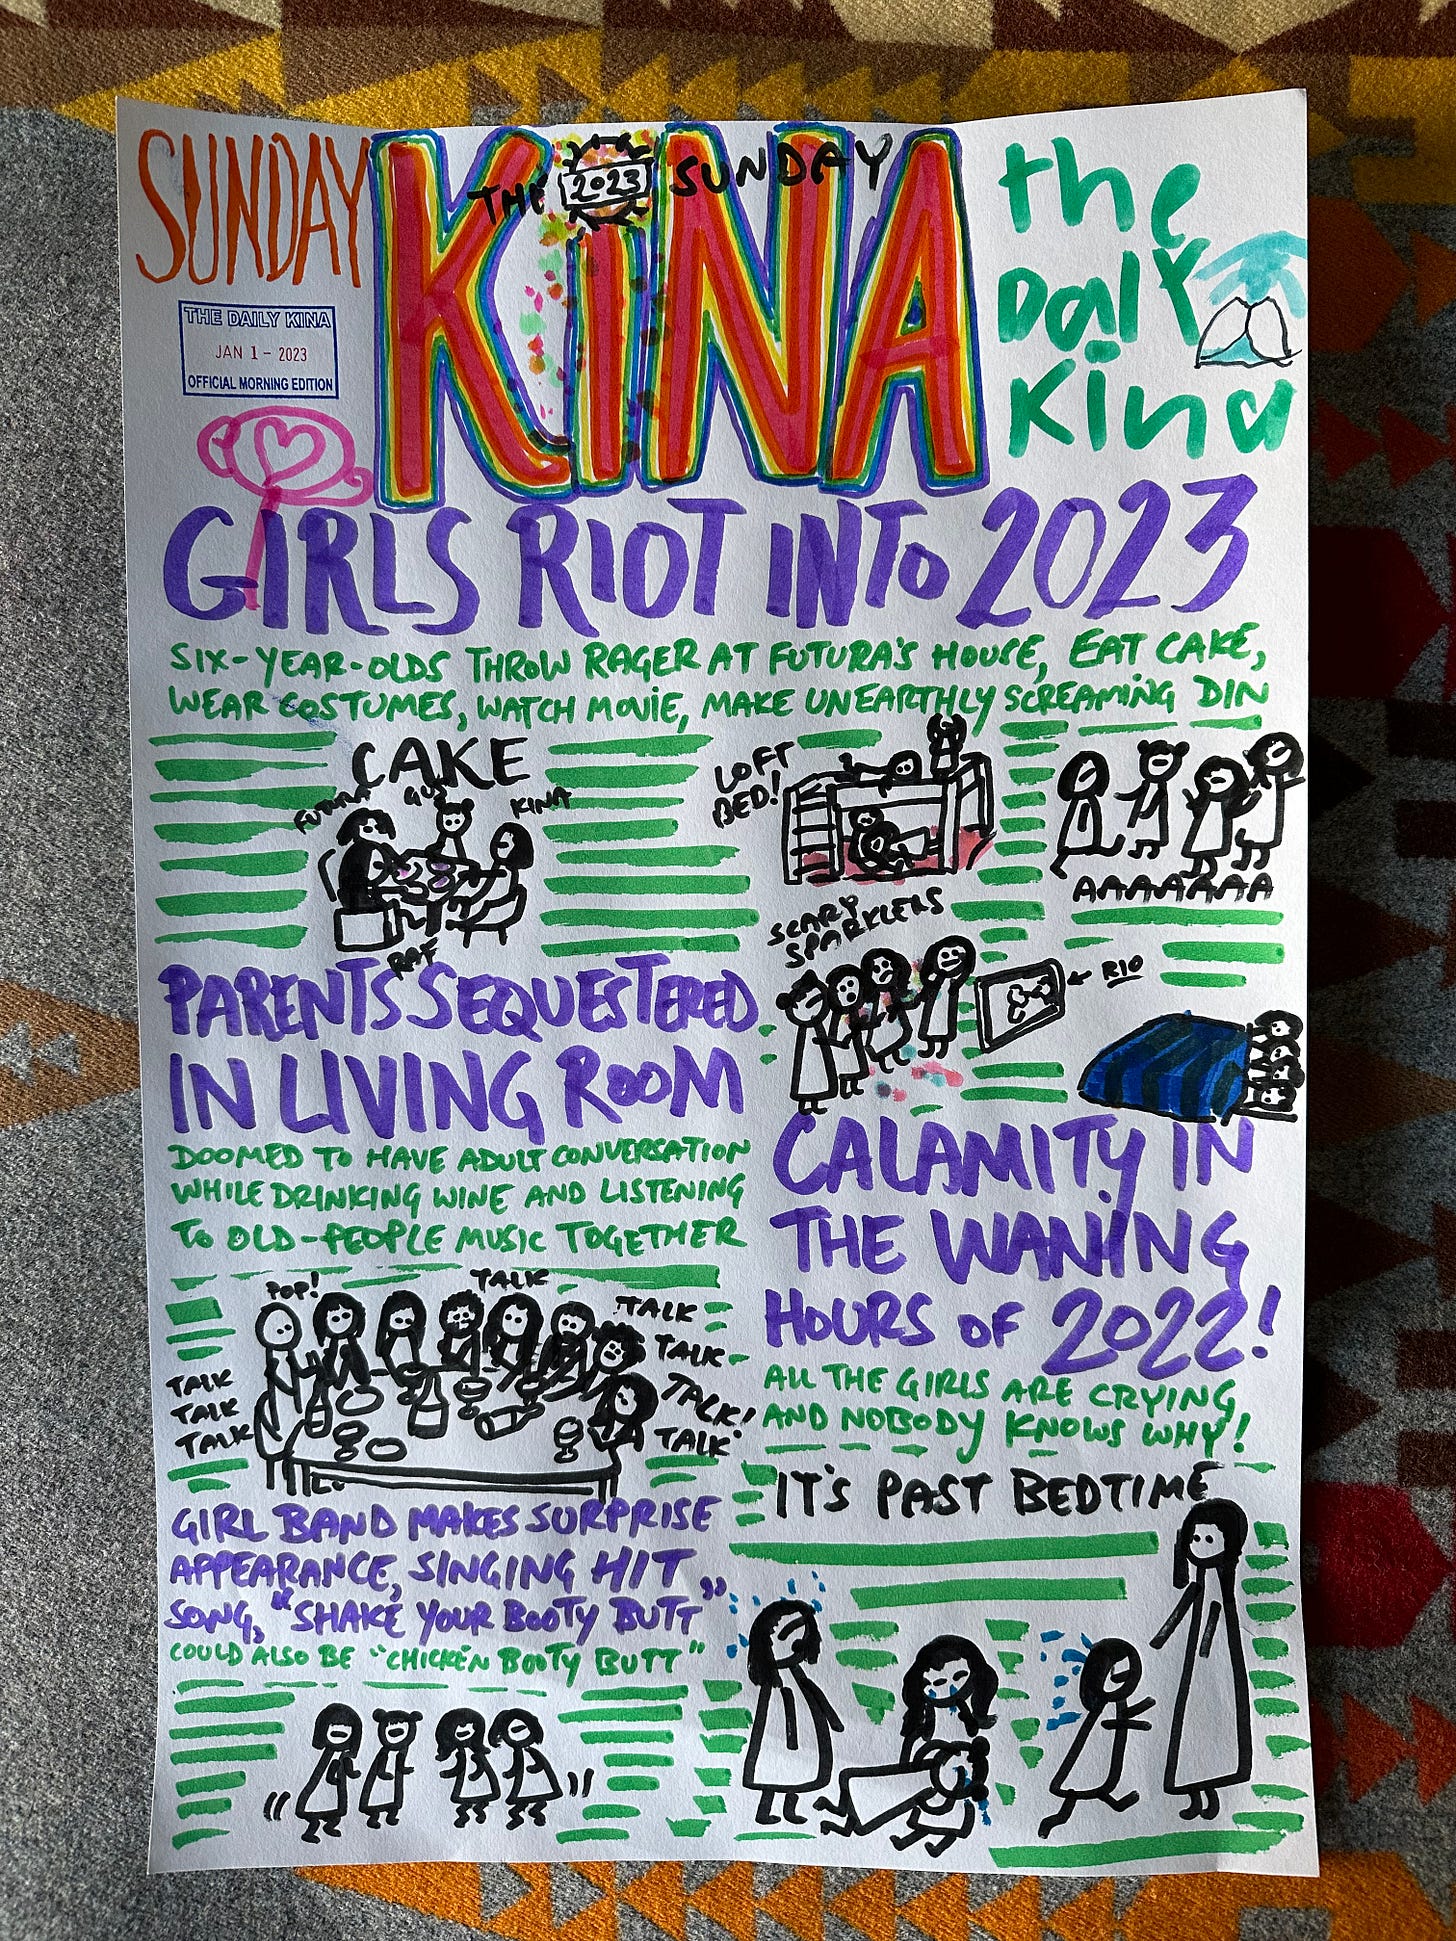 SUNDAY
KiNA
THE 2023 SUNDAY
the
Daily
Kina
THE DAILY KINA
JAN 1 - 2023
OFFICIAL MORNING EDITION
GIRLS RIOT INTO 2023
SIX-YEAR-OLDS THROW RAGER AT FUTURA'S HOUSE, EAT CAKE,
WEAR COSTUMES, WATCH MOVIE, MAKE UNEARTHLY SCREAMiNG DIN
CAKE
FUTURA
GUS
KINA
RAF
LOFT
BED!
AAAAAAAA
SCARY
SPARKLERS
RIO
PARENTS SEQUESTERED
IN LIVING ROOM
DOOMED TO HAVE ADULT CONVERSATION
WHILE DRINKING WINE AND LISTENING
TO OLD-PEOPLE MUSIC TOGETHER
POP!
TALK
TALK
TALK
TALK!
TALK
TALK
TALK
TALK
CALAMITY IN
THE WANiNG
HOURS OF 2022!
ALL THE GIRLS ARE CRYING
AND NOBODY KNOWS WHY!
IT'S PAST BEDTIME
GIRL BAND MAKES SURPRISE
APPEARANCE, SINGING HIT
SONG, "SHAKE YOUR BOOTY BUTT"
COULD ALSO BE "CHICKEN BOOTY BUTT"